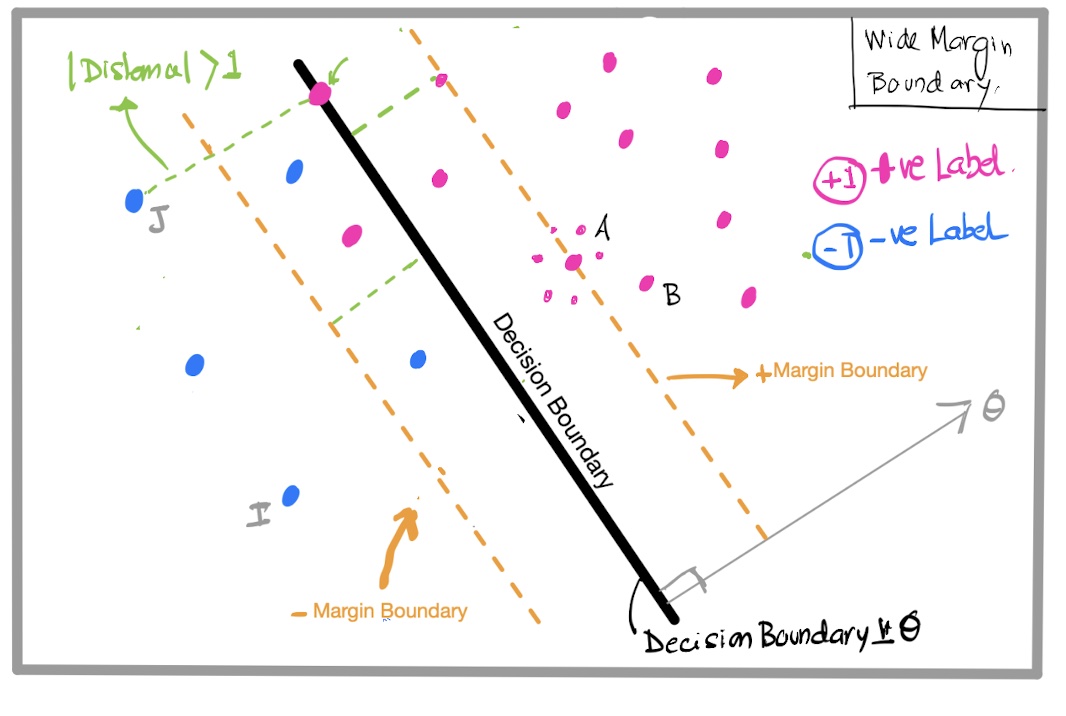 Wide Margin
Boundary.
|Distance| > 1
+1 +ve Label.
-1 -ve Label
J
A
B
Decision Boundary
+Margin Boundary
θ
I
- Margin Boundary
Decision Boundary ⊥ θ